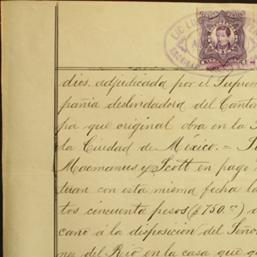 LIC. LU
dios adjudicada por el Suprem
pañia deslindadora del Cantón
pa que original obra en la S
la Ciudad de México. =
Macmanus y Scott en pago
Juan con esta misma fecha la
tos cincuenta pesos ($750.00)
cano á la disposición del Seño
nes del Rio en la casa que